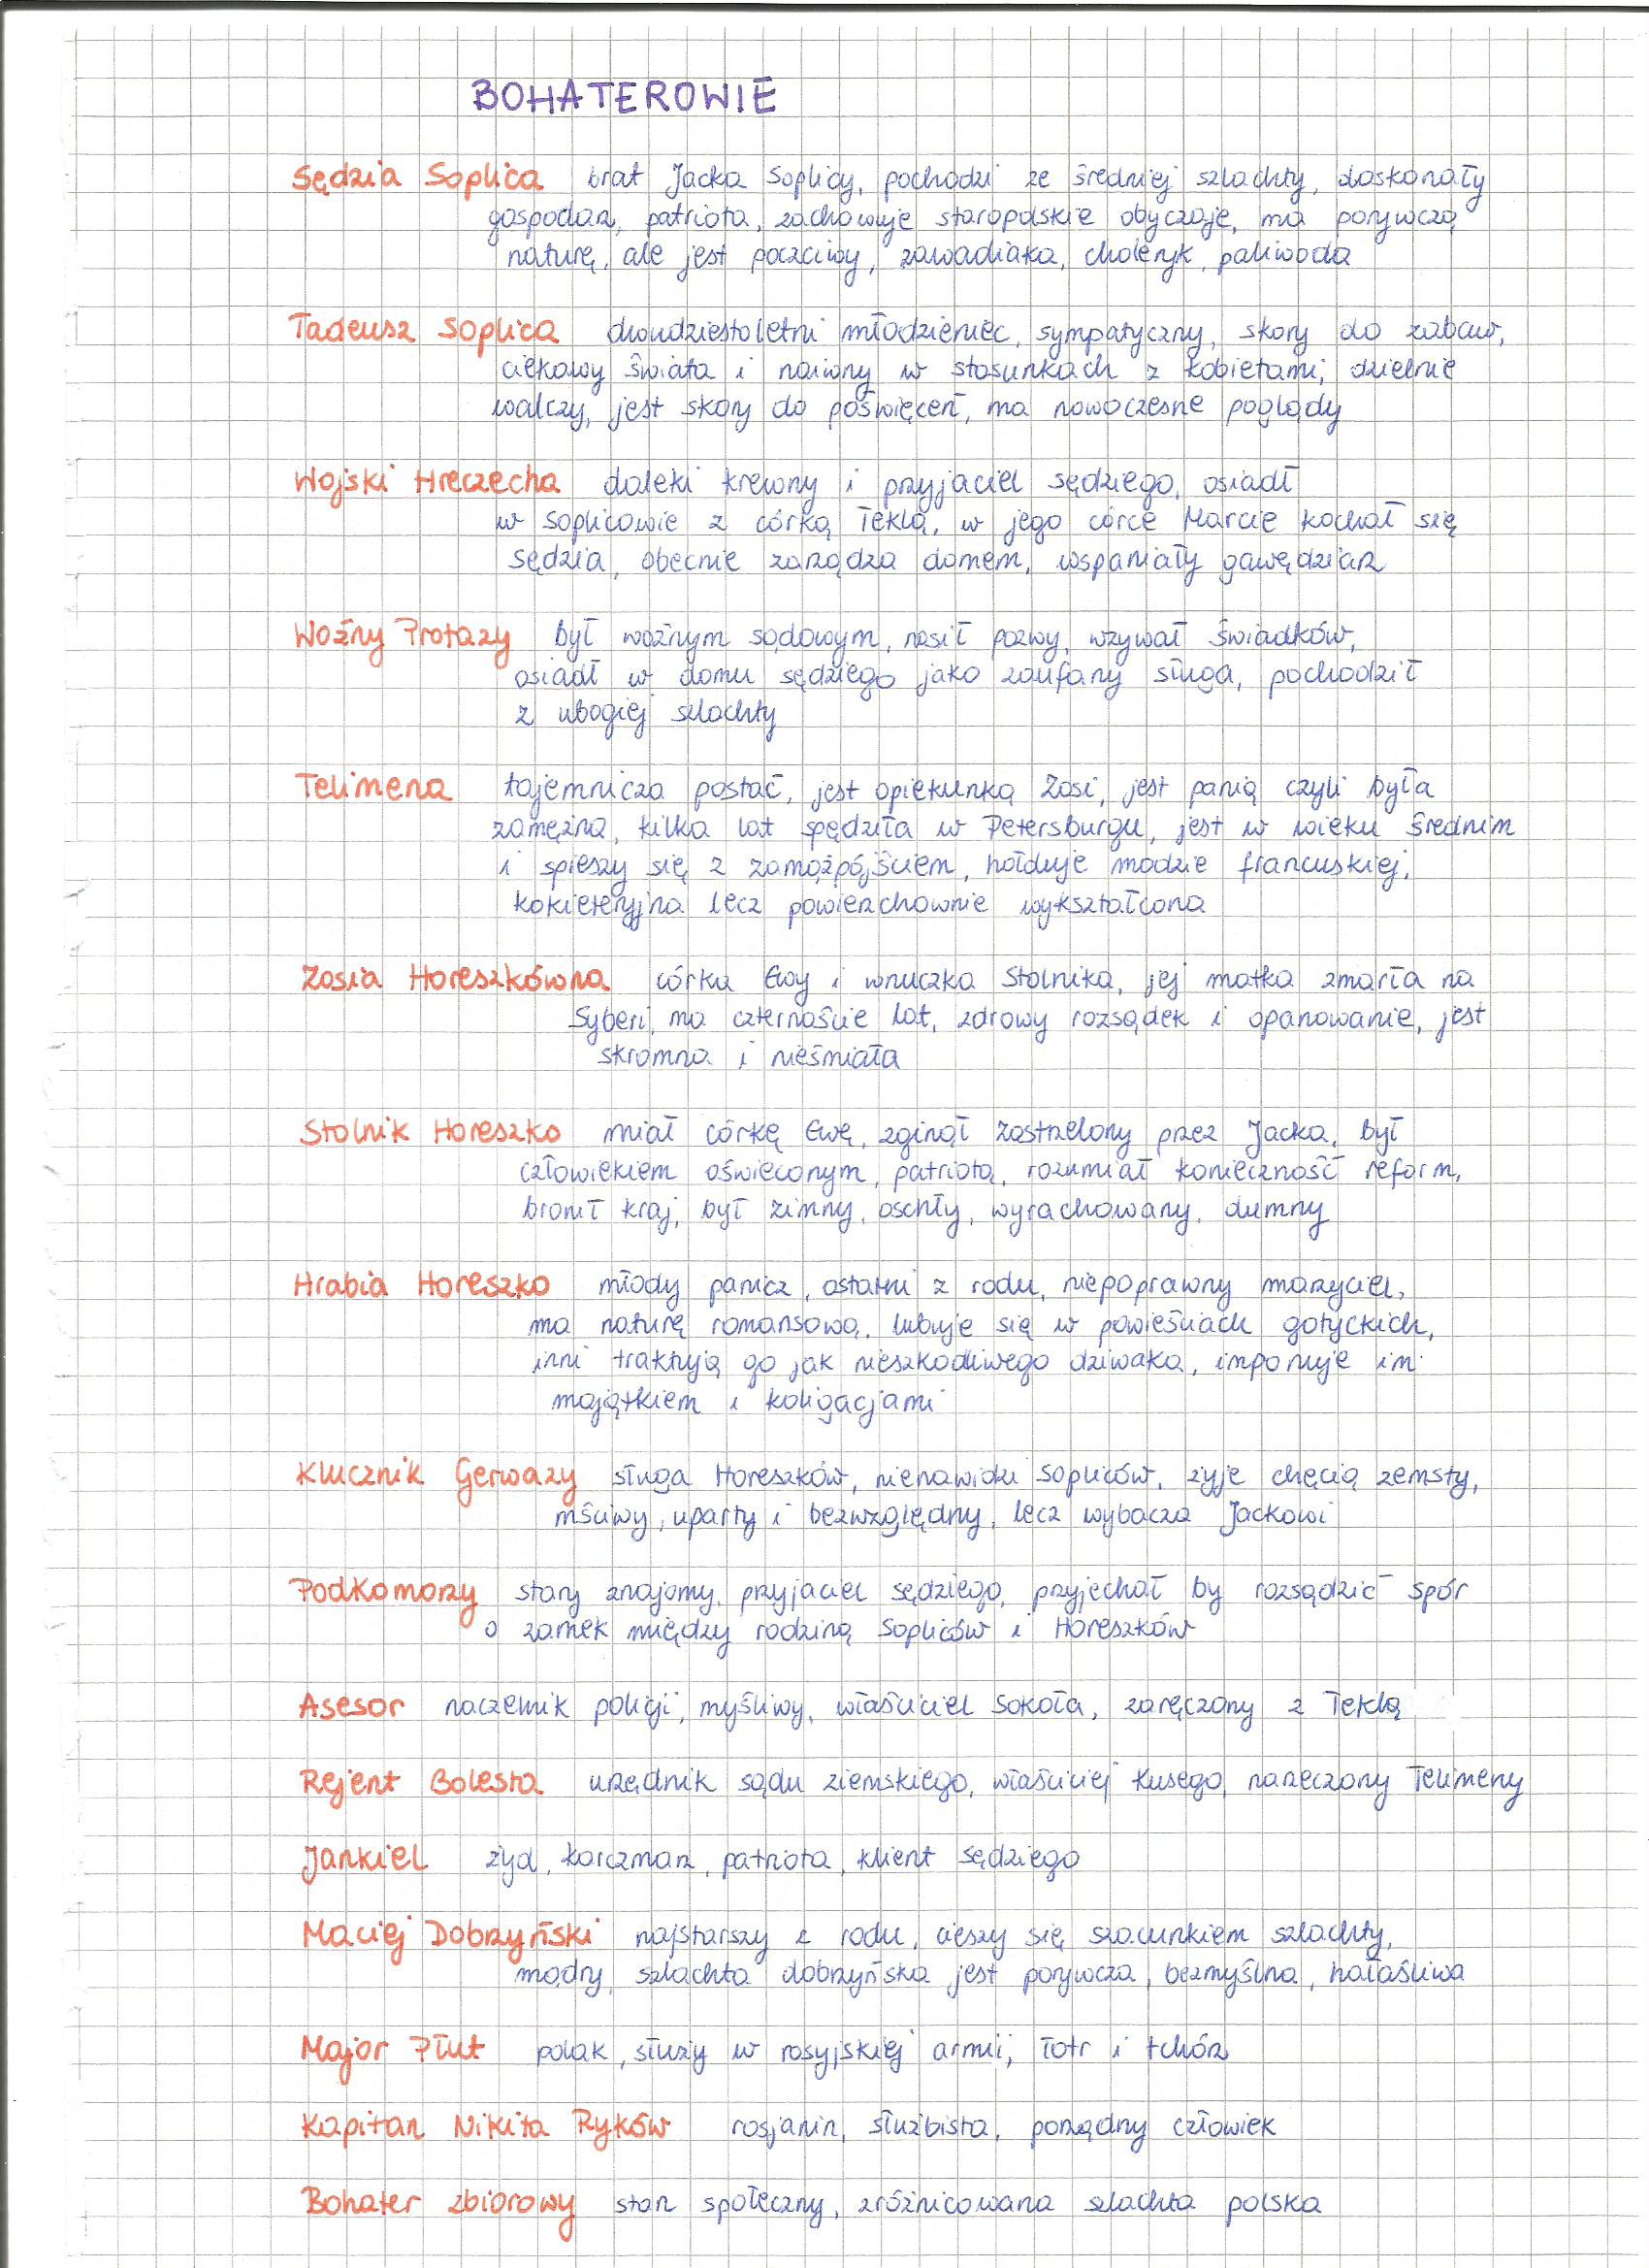 BOHATEROWIE
Sędzia Soplica brat Jacka Soplicy, pochodzi ze średniej szlachty, doskonały
gospodarz, patriota, zachowuje staropolskie obyczaje, ma porywczą
naturę, ale jest poczciwy, zawadiaka, choleryk, paliwoda
Tadeusz Soplica dwudziestoletni młodzieniec, sympatyczny, skory do zabaw,
ciekawy świata i naiwny w stosunkach z kobietami, dzielnie
walczy, jest skory do poświęceń, ma nowoczesne poglądy
Wojski Hreczecha daleki krewny i przyjaciel sędziego, osiadł
w Soplicowie z córką Teklą, w jego córce Marcie kochał się
sędzia, obecnie zarządza domem, wspaniały gawędziarz
Woźny Protazy był woźnym sądowym, nosił pozwy, wzywał świadków,
osiadł w domu sędziego jako zaufany sługa, pochodził
z ubogiej szlachty
Telimena tajemnicza postać, jest opiekunką Zosi, jest panią czyli była
zamężna, kilka lat spędziła w Petersburgu, jest w wieku średnim
i spieszy się z zamążpójściem, hołduje modzie francuskiej,
kokieteryjna lecz powierzchownie wykształcona
Zosia Horeszkówna córka Ewy i wnuczka Stolnika, jej matka zmarła na
Syberi, ma czternaście lat, zdrowy rozsądek i opanowanie, jest
skromna i nieśmiała
Stolnik Horeszko miał córkę Ewę, zginął zastrzelony przez Jacka, był
człowiekiem oświeconym, patriotą, rozumiał konieczność reform,
bronił kraj, był zimny, oschły, wyrachowany, dumny
Hrabia Horeszko młody panicz, ostatni z rodu, niepoprawny marzyciel,
ma naturę romansową, lubuje się w powieściach gotyckich,
inni traktują go jak nieszkodliwego dziwaka, imponuje im
majątkiem i koligacjami
Klucznik Gerwazy sługa Horeszków, nienawidzi Sopliców, żyje chęcią zemsty,
mściwy, uparty i bezwzględny, lecz wybacza Jackowi
Podkomorzy stary znajomy, przyjaciel sędziego, przyjechał by rozsądzić spór
o zamek między rodziną Sopliców i Horeszków
Asesor naczelnik policji, myśliwy, właściciel Sokoła, zaręczony z Teklą
Rejent Bolesta urzędnik sądu ziemskiego, właściciej Kusego, narzeczony Telimeny
Jankiel żyd, karczmarz, patriota, klient sędziego
Maciej Dobrzyński najstarszy z rodu, cieszy się szacunkiem szlachty,
mądry, szlachta dobrzyńska jest porywcza, bezmyślna, hałaśliwa
Major Płut polak, służy w rosyjskiej armii, łotr i tchórz
Kapitan Nikita Ryków rosjanin, służbista, porządny człowiek
Bohater zbiorowy stan społeczny, zróżnicowana szlachta polska